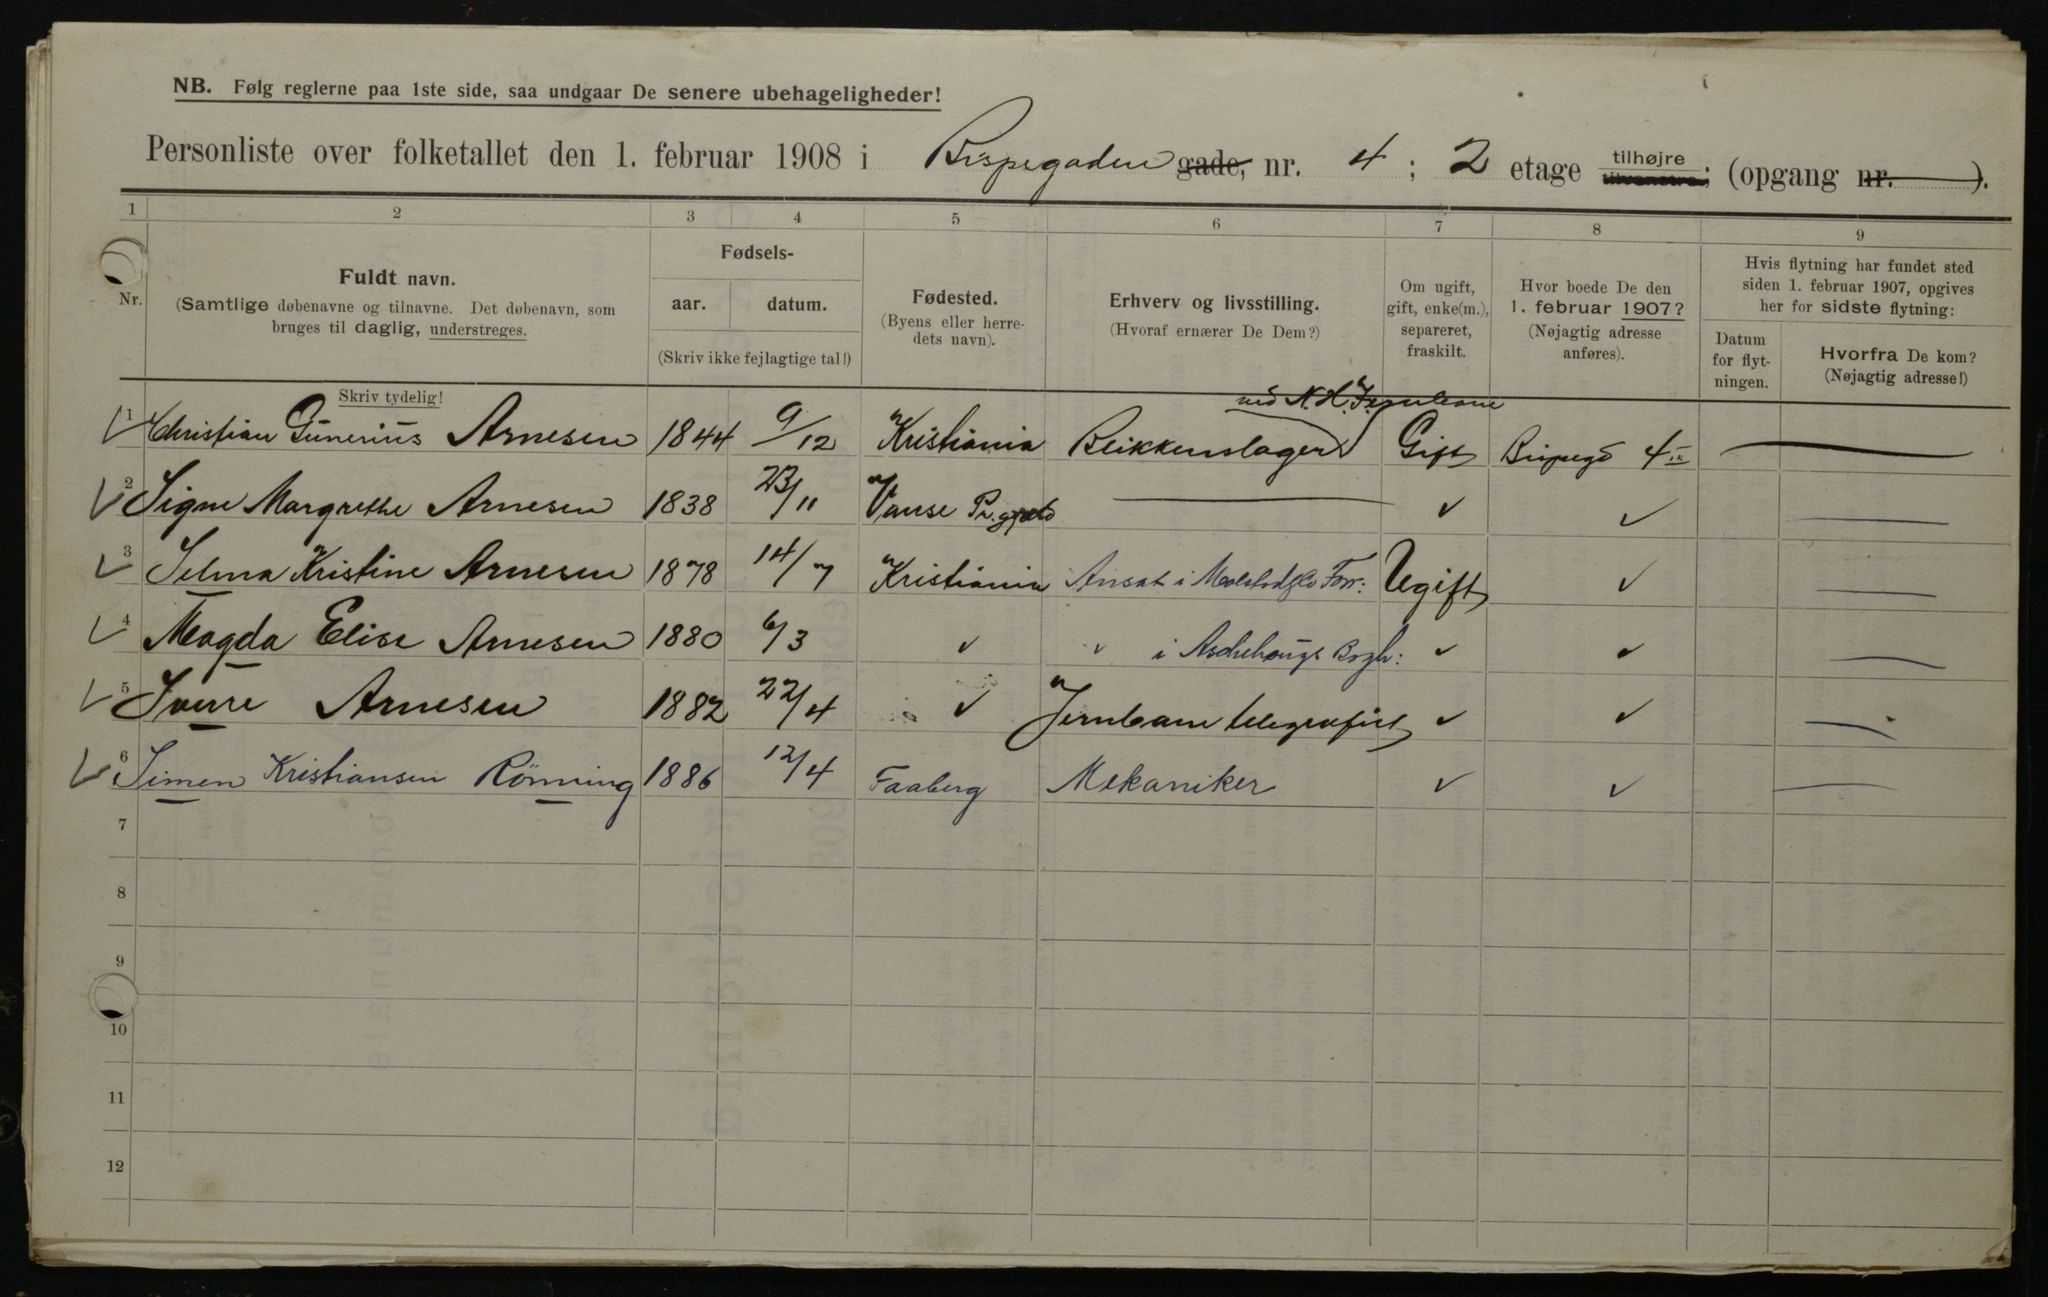 NB. Følg reglerne paa 1ste side, saa undgaar De senere ubehageligheder!
Personliste over folketallet den 1. februar 1908 i Bispegaden gade, nr. 4 ; 2 etage tilhøjre tilvenstre; (opgang nr. ).
1 2 3 4 5 6 7 8 9
Nr.
Fuldt navn.
(Samtlige døbenavne og tilnavne. Det døbenavn, som
bruges til daglig, understreges.
Skriv tydelig!
Fødsels-
aar. datum.
(Skriv ikke fejlagtige tal!)
Fødested.
(Byens eller herre-
dets navn).
Erhverv og livsstilling.
(Hvoraf ernærer De Dem?)
Om ugift,
gift, enke(m.),
separeret,
fraskilt.
Hvor boede De den
1. februar 1907?
(Nøjagtig adresse
anføres).
Hvis flytning har fundet sted
siden 1. februar 1907, opgives
her for sidste flytning:
Datum
for flyt-
ningen.
Hvorfra De kom?
(Nøjagtig adresse!)
ved N.H. Jernbane
1 Christian Gunerius Arnesen 1844 9/12 Kristiania Blikkenslager Gift Bispegd 4
2 Signe Margrethe Arnesen 1838 23/11 Vanse Pr.gjeld ✓ ✓
3 Selma Kristine Arnesen 1878 14/7 Kristiania Ansat i Forr: Ugift ✓
4 Magda Elise Arnesen 1880 6/3 ✓ " i Aschehougs Bogh: ✓ ✓
5 Sverre Arnesen 1882 22/4 ✓ Jernbanetelegrafist ✓ ✓
6 Simen Kristiansen Rönning 1886 12/4 Faaberg Mekaniker ✓ ✓
7
8
9
10
11
12